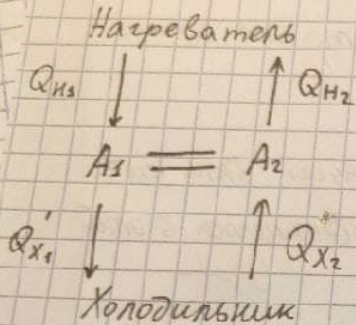 Нагреватель
Qн1 Qн2
A1 = A2
Q'х1 Qх2
Холодильник